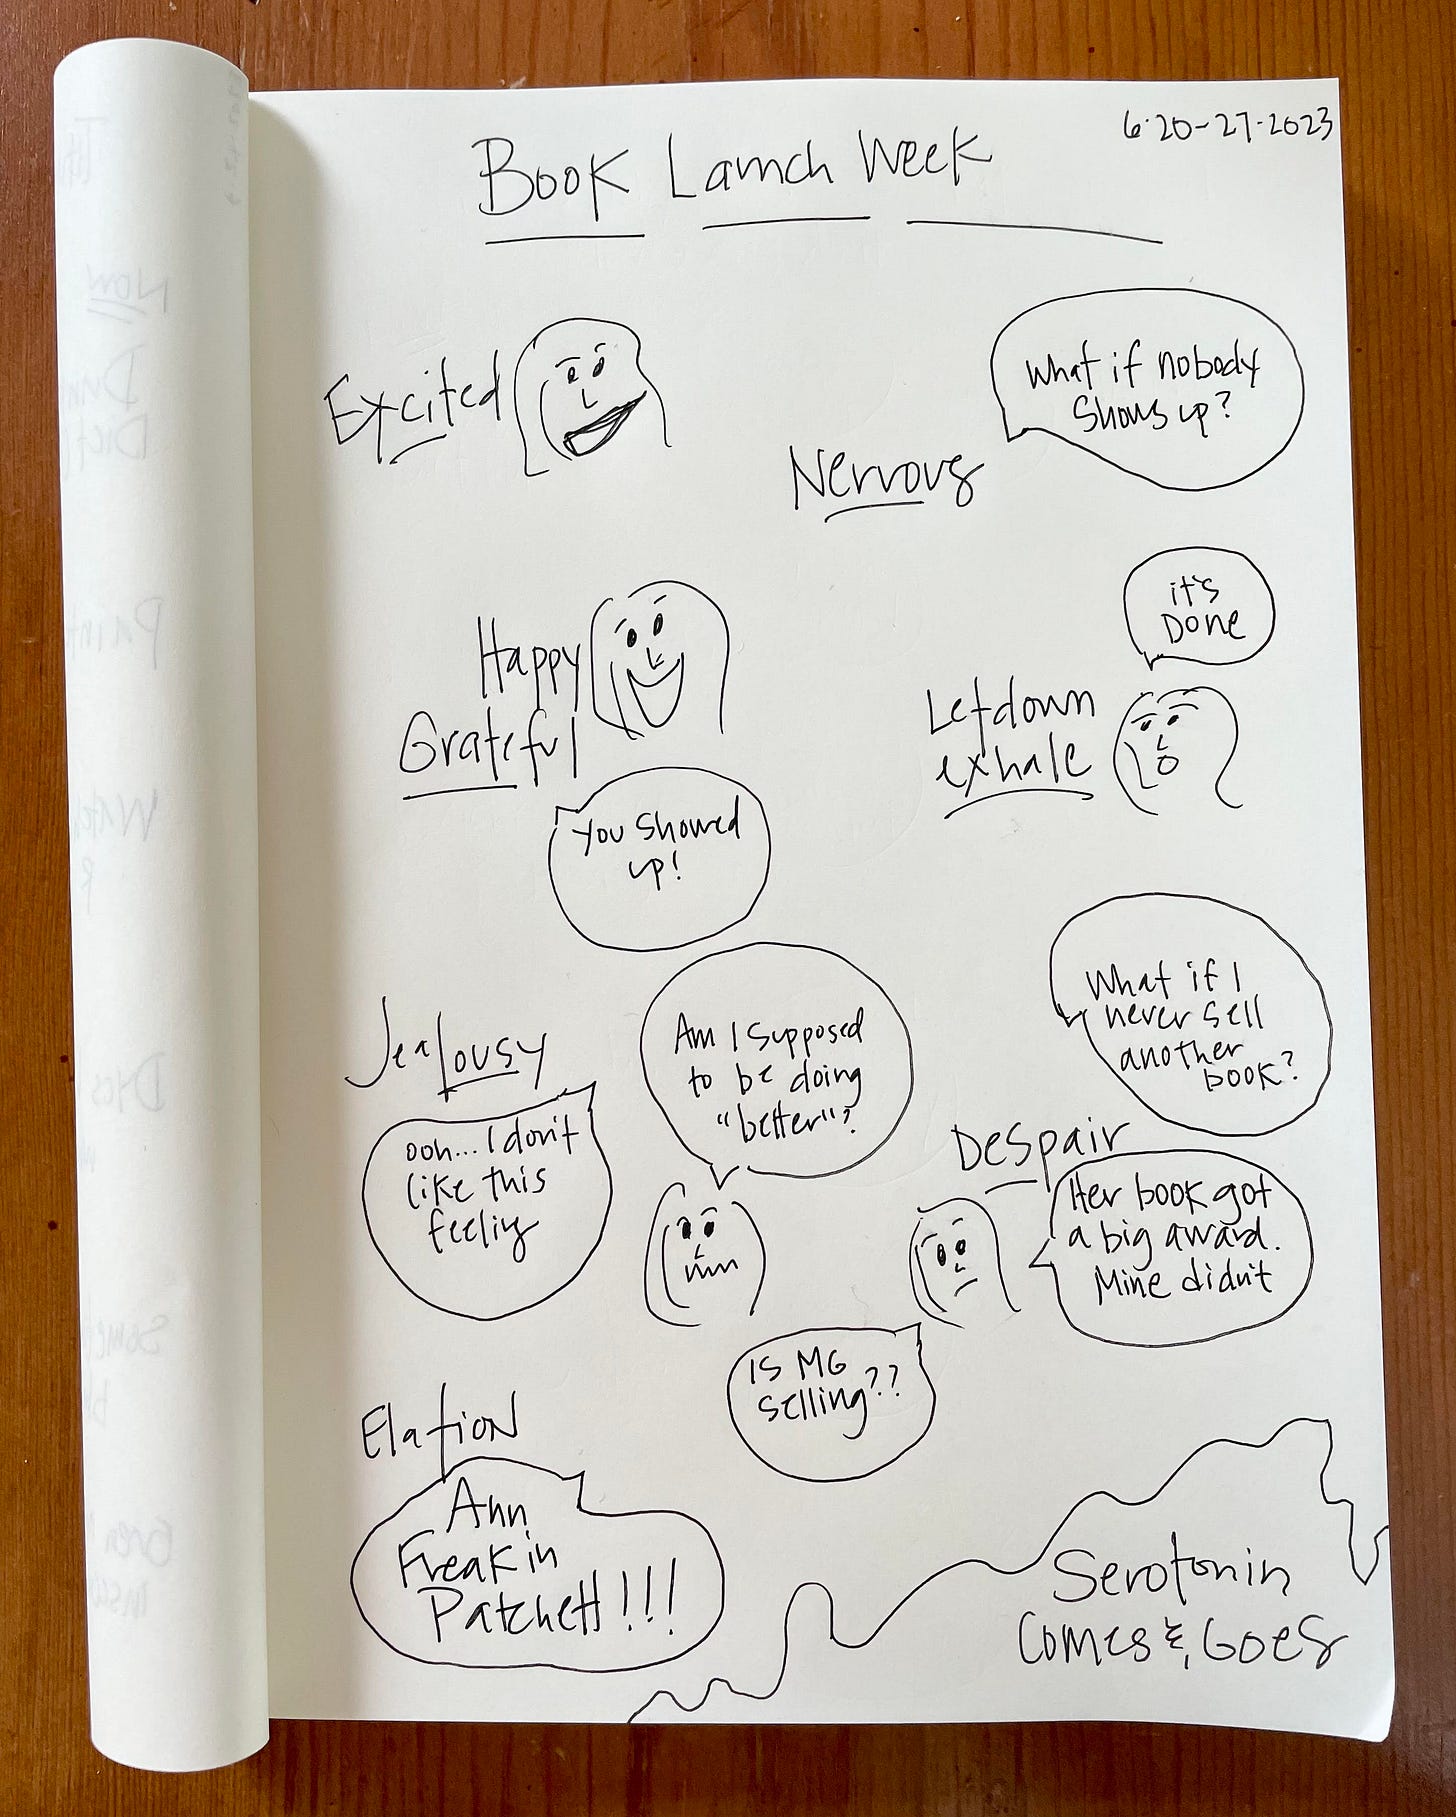 6·20-27·2023
Book Launch Week
Excited
What if nobody
shows up?
Nervous
it's
Done
Happy
Grateful
Letdown
exhale
You showed
up!
Jealousy
ooh... I don't
like this
feeling
Am I supposed
to be doing
"better"?
What if I
never sell
another
book?
Despair
Her book got
a big award.
Mine didn't
Is MG
selling??
Elation
Ann
Freakin
Patchett!!!
Serotonin
Comes & Goes
Now
Paint